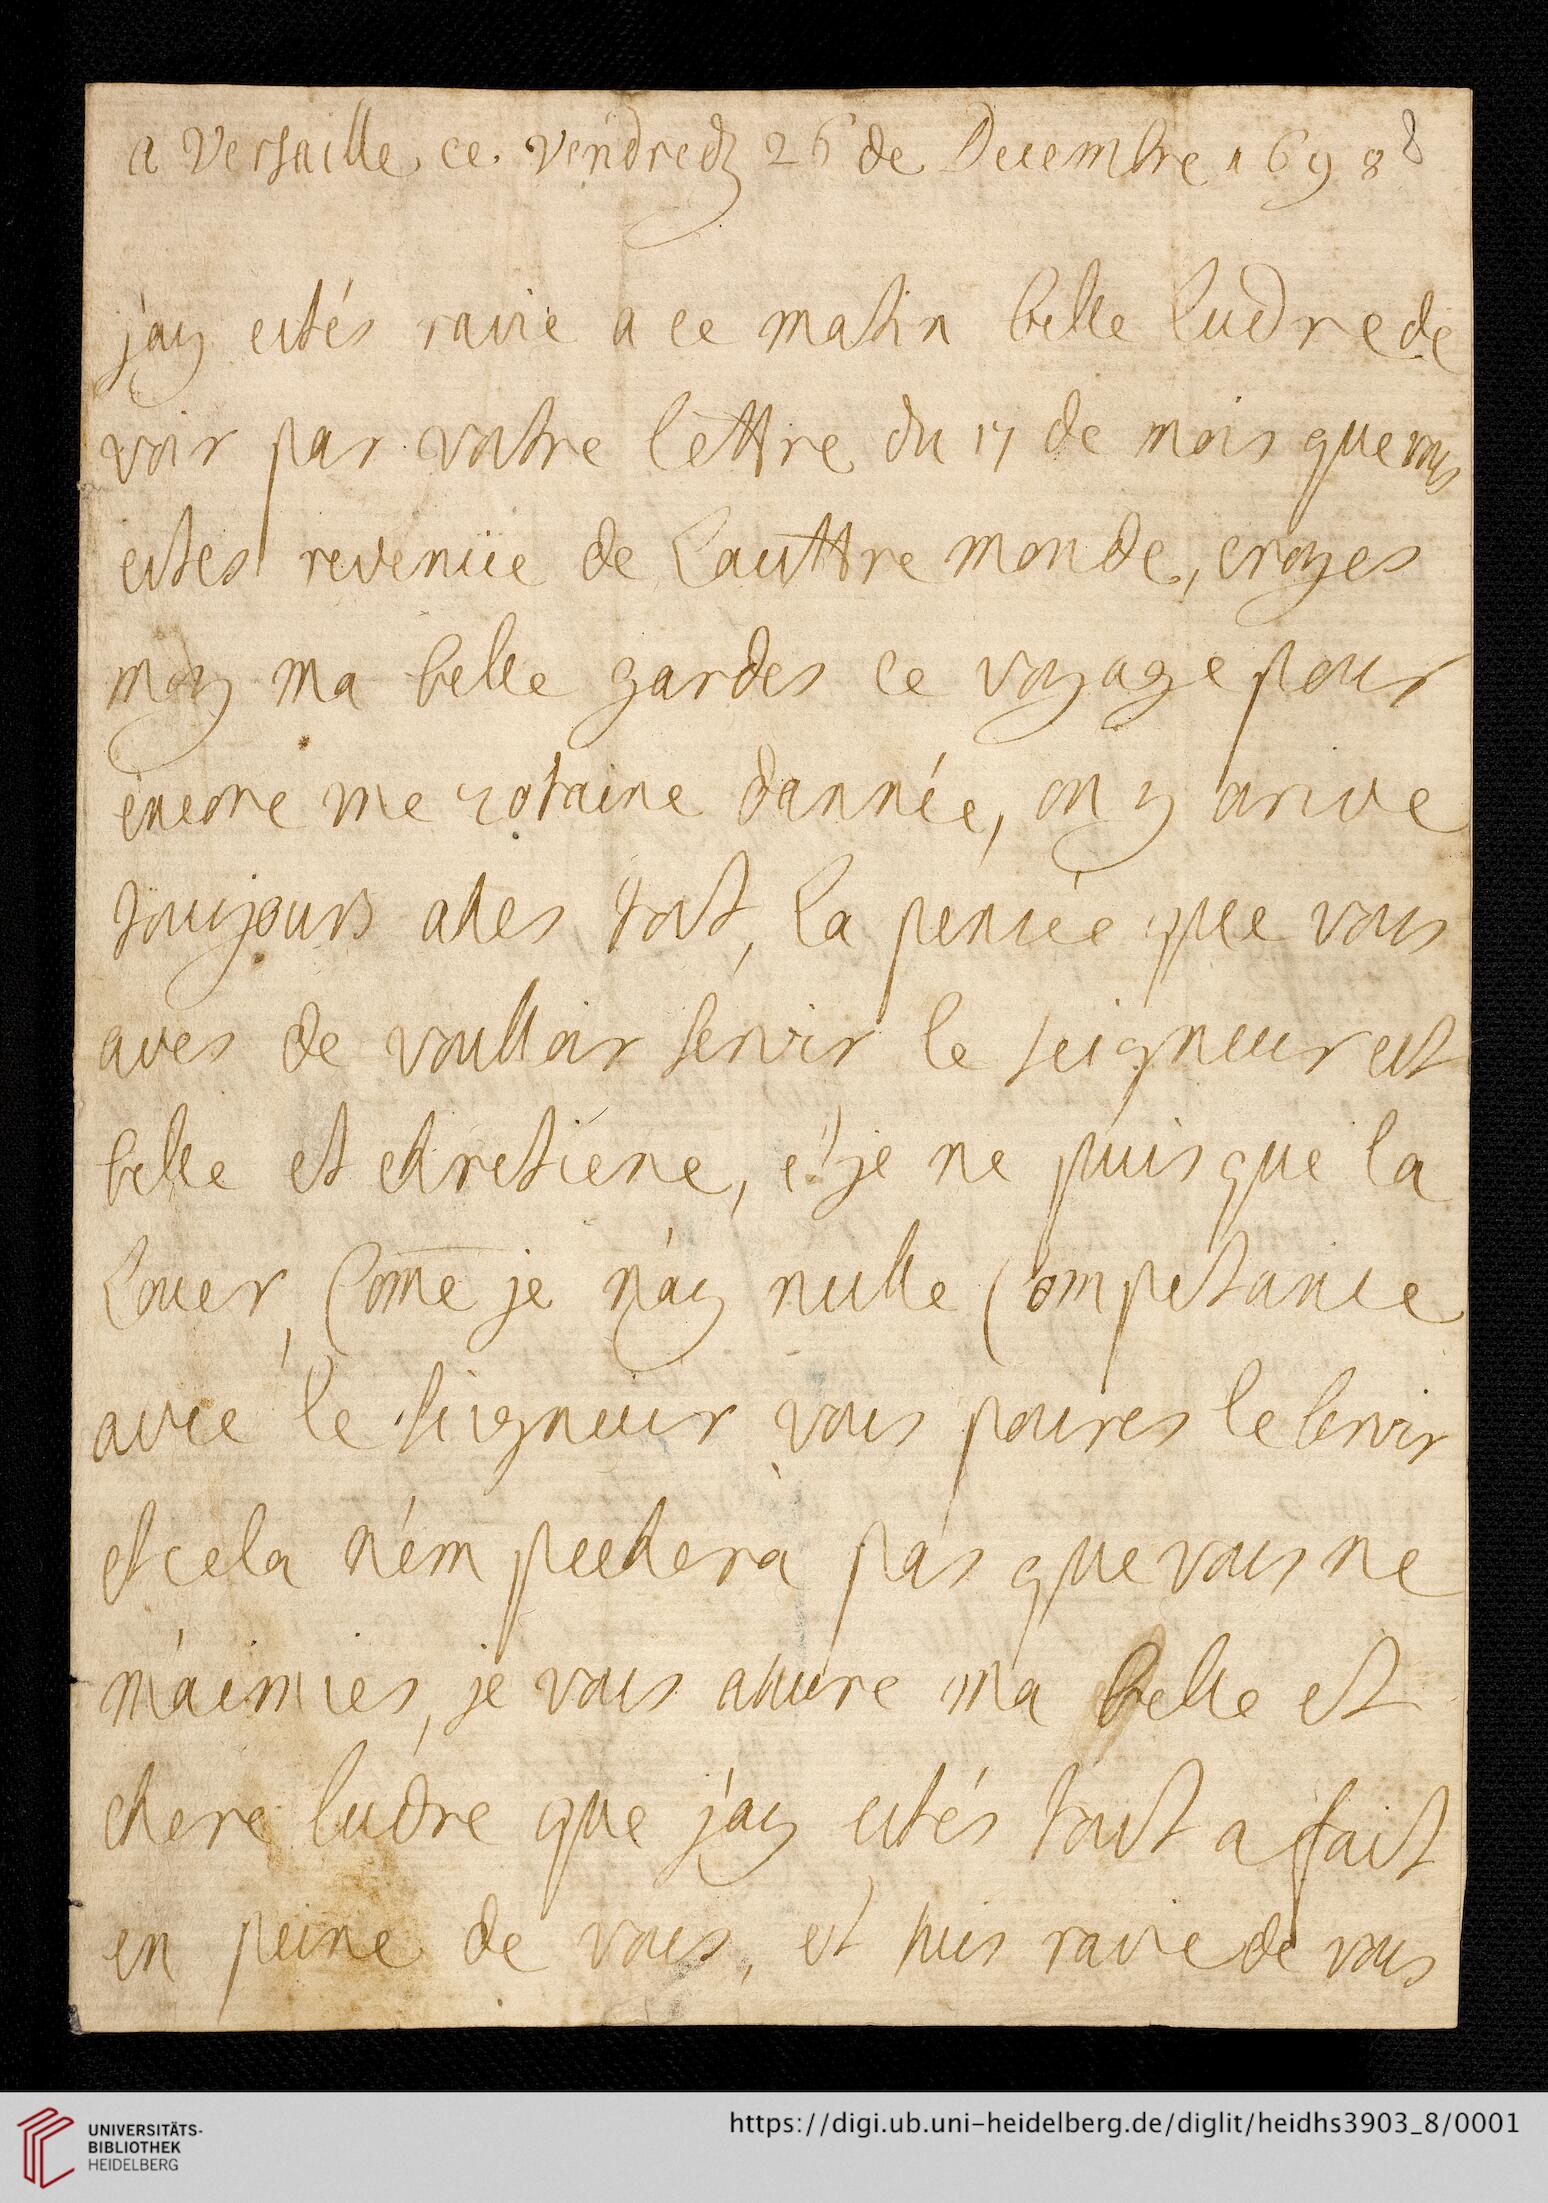 a Versaille ce vendredy 26 de Decembre 1698
8
j'ay estés ravie a ce matin belle Ludre de
voir par vostre lettre du 17 de mois que vous
estes revenüe de Lauttre monde, croyes
moy ma belle gardes ce voyage pour
encore une 20taine dannée, on y arive
toujours asses tost, La pensée que vous
aves de voulloir servir le seigneur est
belle et chretiene, et je ne puis que la
Louer, Come je n'ay nulle Competance
avec le seigneur vous poures le servir
et cela n'empechera pas que vous ne
m'aimies, je vous assure ma belle et
chere Ludre que j'ay estés tout a fait
en peine de vous, et suis ravie de vous
UNIVERSITÄTS-
BIBLIOTHEK
HEIDELBERG
https://digi.ub.uni-heidelberg.de/diglit/heidhs3903_8/0001